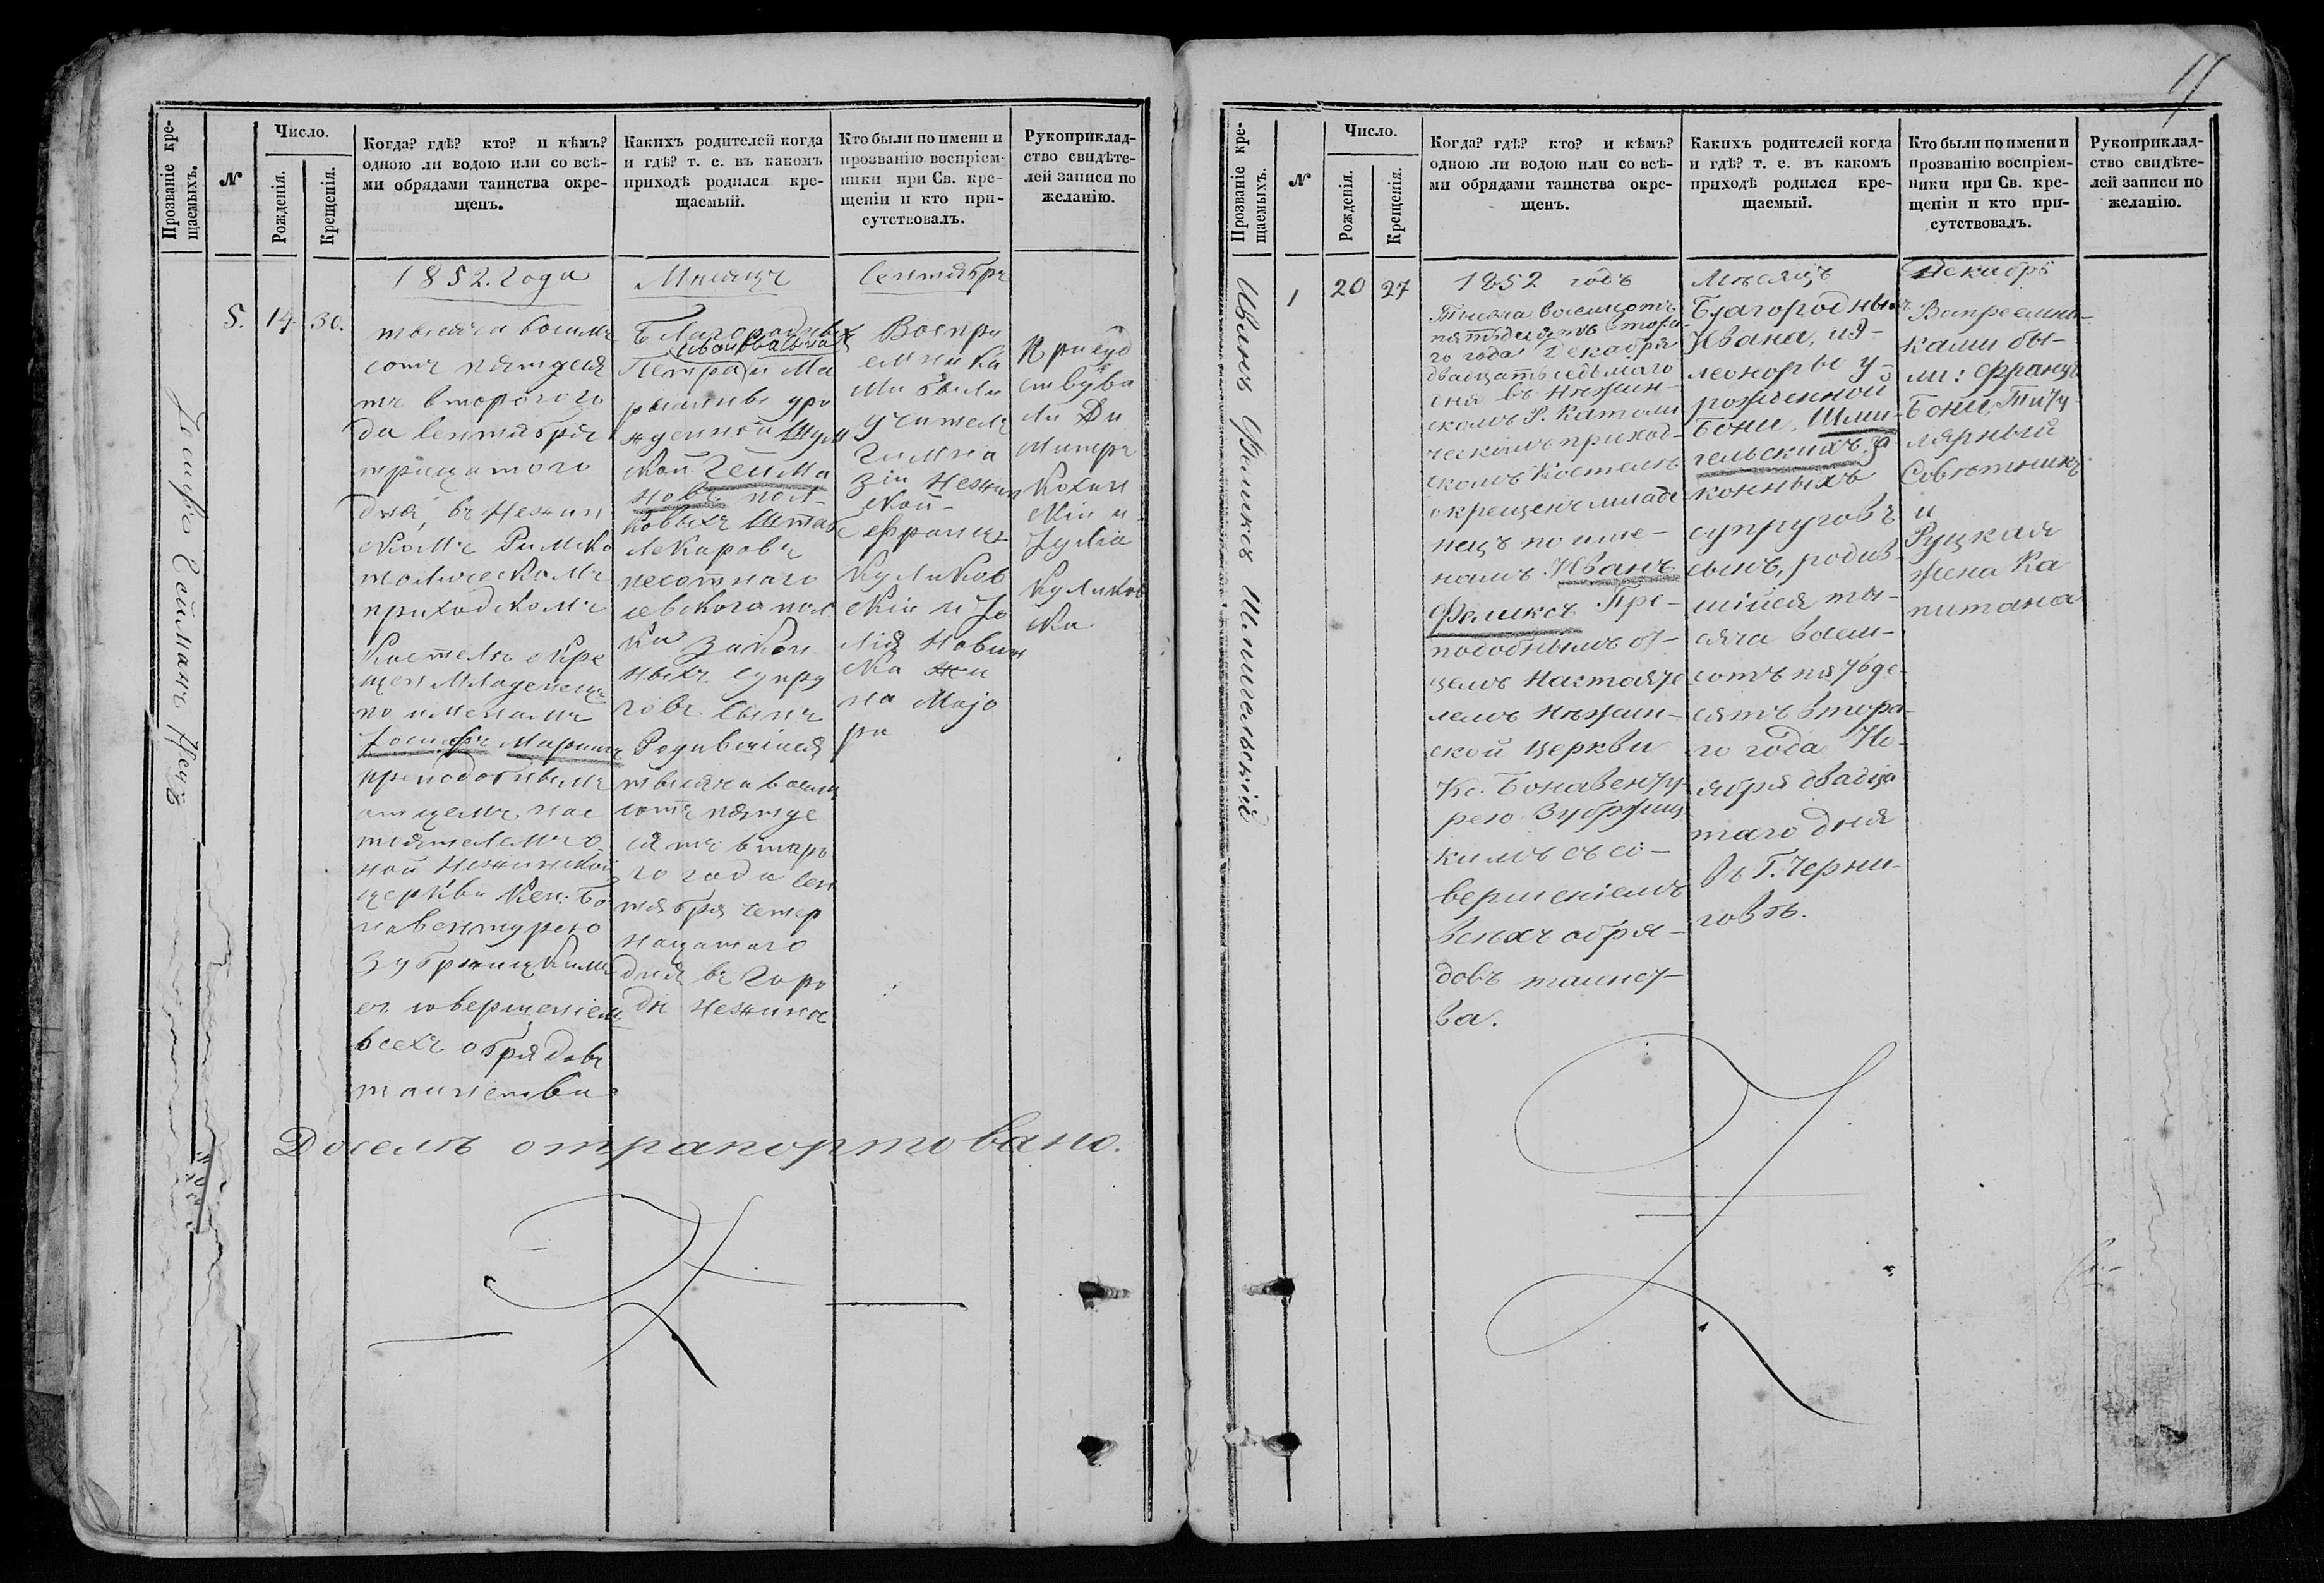 Прозваніе кре-
щаемыхъ.
№
Число.
Рожденія.
Крещенія.
Когда? гдѣ? кто? и кѣмъ?
одною ли водою или со всѣ-
ми обрядами таинства окре-
щенъ.
Какихъ родителей когда
и гдѣ? т. е. въ какомъ
приходѣ родился кре-
щаемый.
Кто были по имени и
прозванію воспріем-
ники при Св. кре-
щеніи и кто при-
сутствовалъ.
Рукоприклад-
ство свидѣте-
лей записи по
желанію.
5.
14.
30.
1852. Года
тысяча восимъ
сотъ пятдеся
тъ второго го
да Сентября
трицатого
дня, въ Нежин
скомъ Римско
толическомъ
приходскомъ
Костелѣ окре
щен Младенецъ
по именамъ
преподобнымъ
отцемъ нас
тоятелемъ
ной Нежинской
церкви Ксен. Бо
навентурею
Зубржицкимъ
съ совершеніем
всехъ обрядовъ
таинства
Мнсяцъ
Благородныхъ
Петра и Ма
ковыхъ Штаб
Лекаровъ
пехотного
севского пол
ка Закон
ныхъ Супру
говъ Сынъ
Родившійся
тысяча восим
сотъ пятде
сятъ второ
го года Сен
тября четыр
нацатого
дня въ Горо
дѣ Нежинѣ
Сентябрь
Воспри
емника
ми были
учитель
Гимна
зіи Нежин
ской
Францъ
Куликов
скіи и Ю
лія Новин
ска же
на Маіо
ра
Присуд
ствува
ли Ди
митръ
Кохан
скіи и
Юлія
Куликов
ска
Доселѣ отрапортовано.
Прозваніе кре-
щаемыхъ.
№
Число.
Рожденія.
Крещенія.
Когда? гдѣ? кто? и кѣмъ?
одною ли водою или со всѣ-
ми обрядами таинства окре-
щенъ.
Какихъ родителей когда
и гдѣ? т. е. въ какомъ
приходѣ родился кре-
щаемый.
Кто были по имени и
прозванію воспріем-
ники при Св. кре-
щеніи и кто при-
сутствовалъ.
Рукоприклад-
ство свидѣте-
лей записи по
желанію.
Иванъ Феликсъ Шпигельскій
1
20
27
1852 годъ
Тысяча восемсотъ
пятьдесятъ второ-
го года Декабря
двадцать седьмаго
дня въ Нѣжин-
скомъ Р. Католи
ческомъ приход-
скомъ Костелѣ
окрещенъ младе
нецъ по име-
намъ Иванъ
Феликсъ Пре-
подобнымъ от-
цемъ Настояте
лемъ Нѣжин-
ской Церкви
Кс. Бонавенту-
рею Зубржиц
кимъ съ со-
вершеніемъ
всѣхъ обря-
довъ таинст-
ва.
Мѣсяцъ
Благородныхъ
Ивана, и Э-
леоноры у-
рожденной
Бони, Шпи-
гельскихъ за
конныхъ
супруговъ
сынъ, родив-
шійся ты-
сяча восем-
сотъ пятьде-
сятъ втора-
го года Но-
ября двадца
таго дня
въ Г. Черни-
говѣ.
Декабрь
Воспреемни-
ками бы-
ли: Францъ
Бони, Титу-
лярный
Совѣтникъ
и
Руцкая
жена Ка
питана